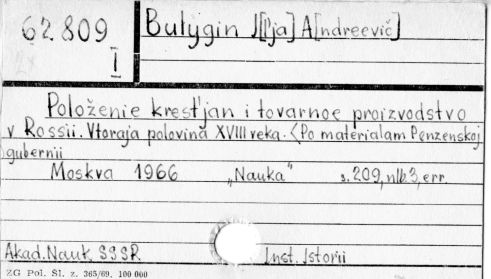 62.809
I
Bulygin I[l'ja] A[ndreevič]
Położenie krest'jan i tovarnoe proizvodstvo
v Rossii. Vtoraja polovina XVIII veka. <Po materialam Penzenskoj
gubernii
Moskva 1966 „Nauka" s. 209, nlb. 3, err.
Akad. Nauk SSSR Inst. Istorii
ZG Pol. Sl. z. 365/69. 100 000